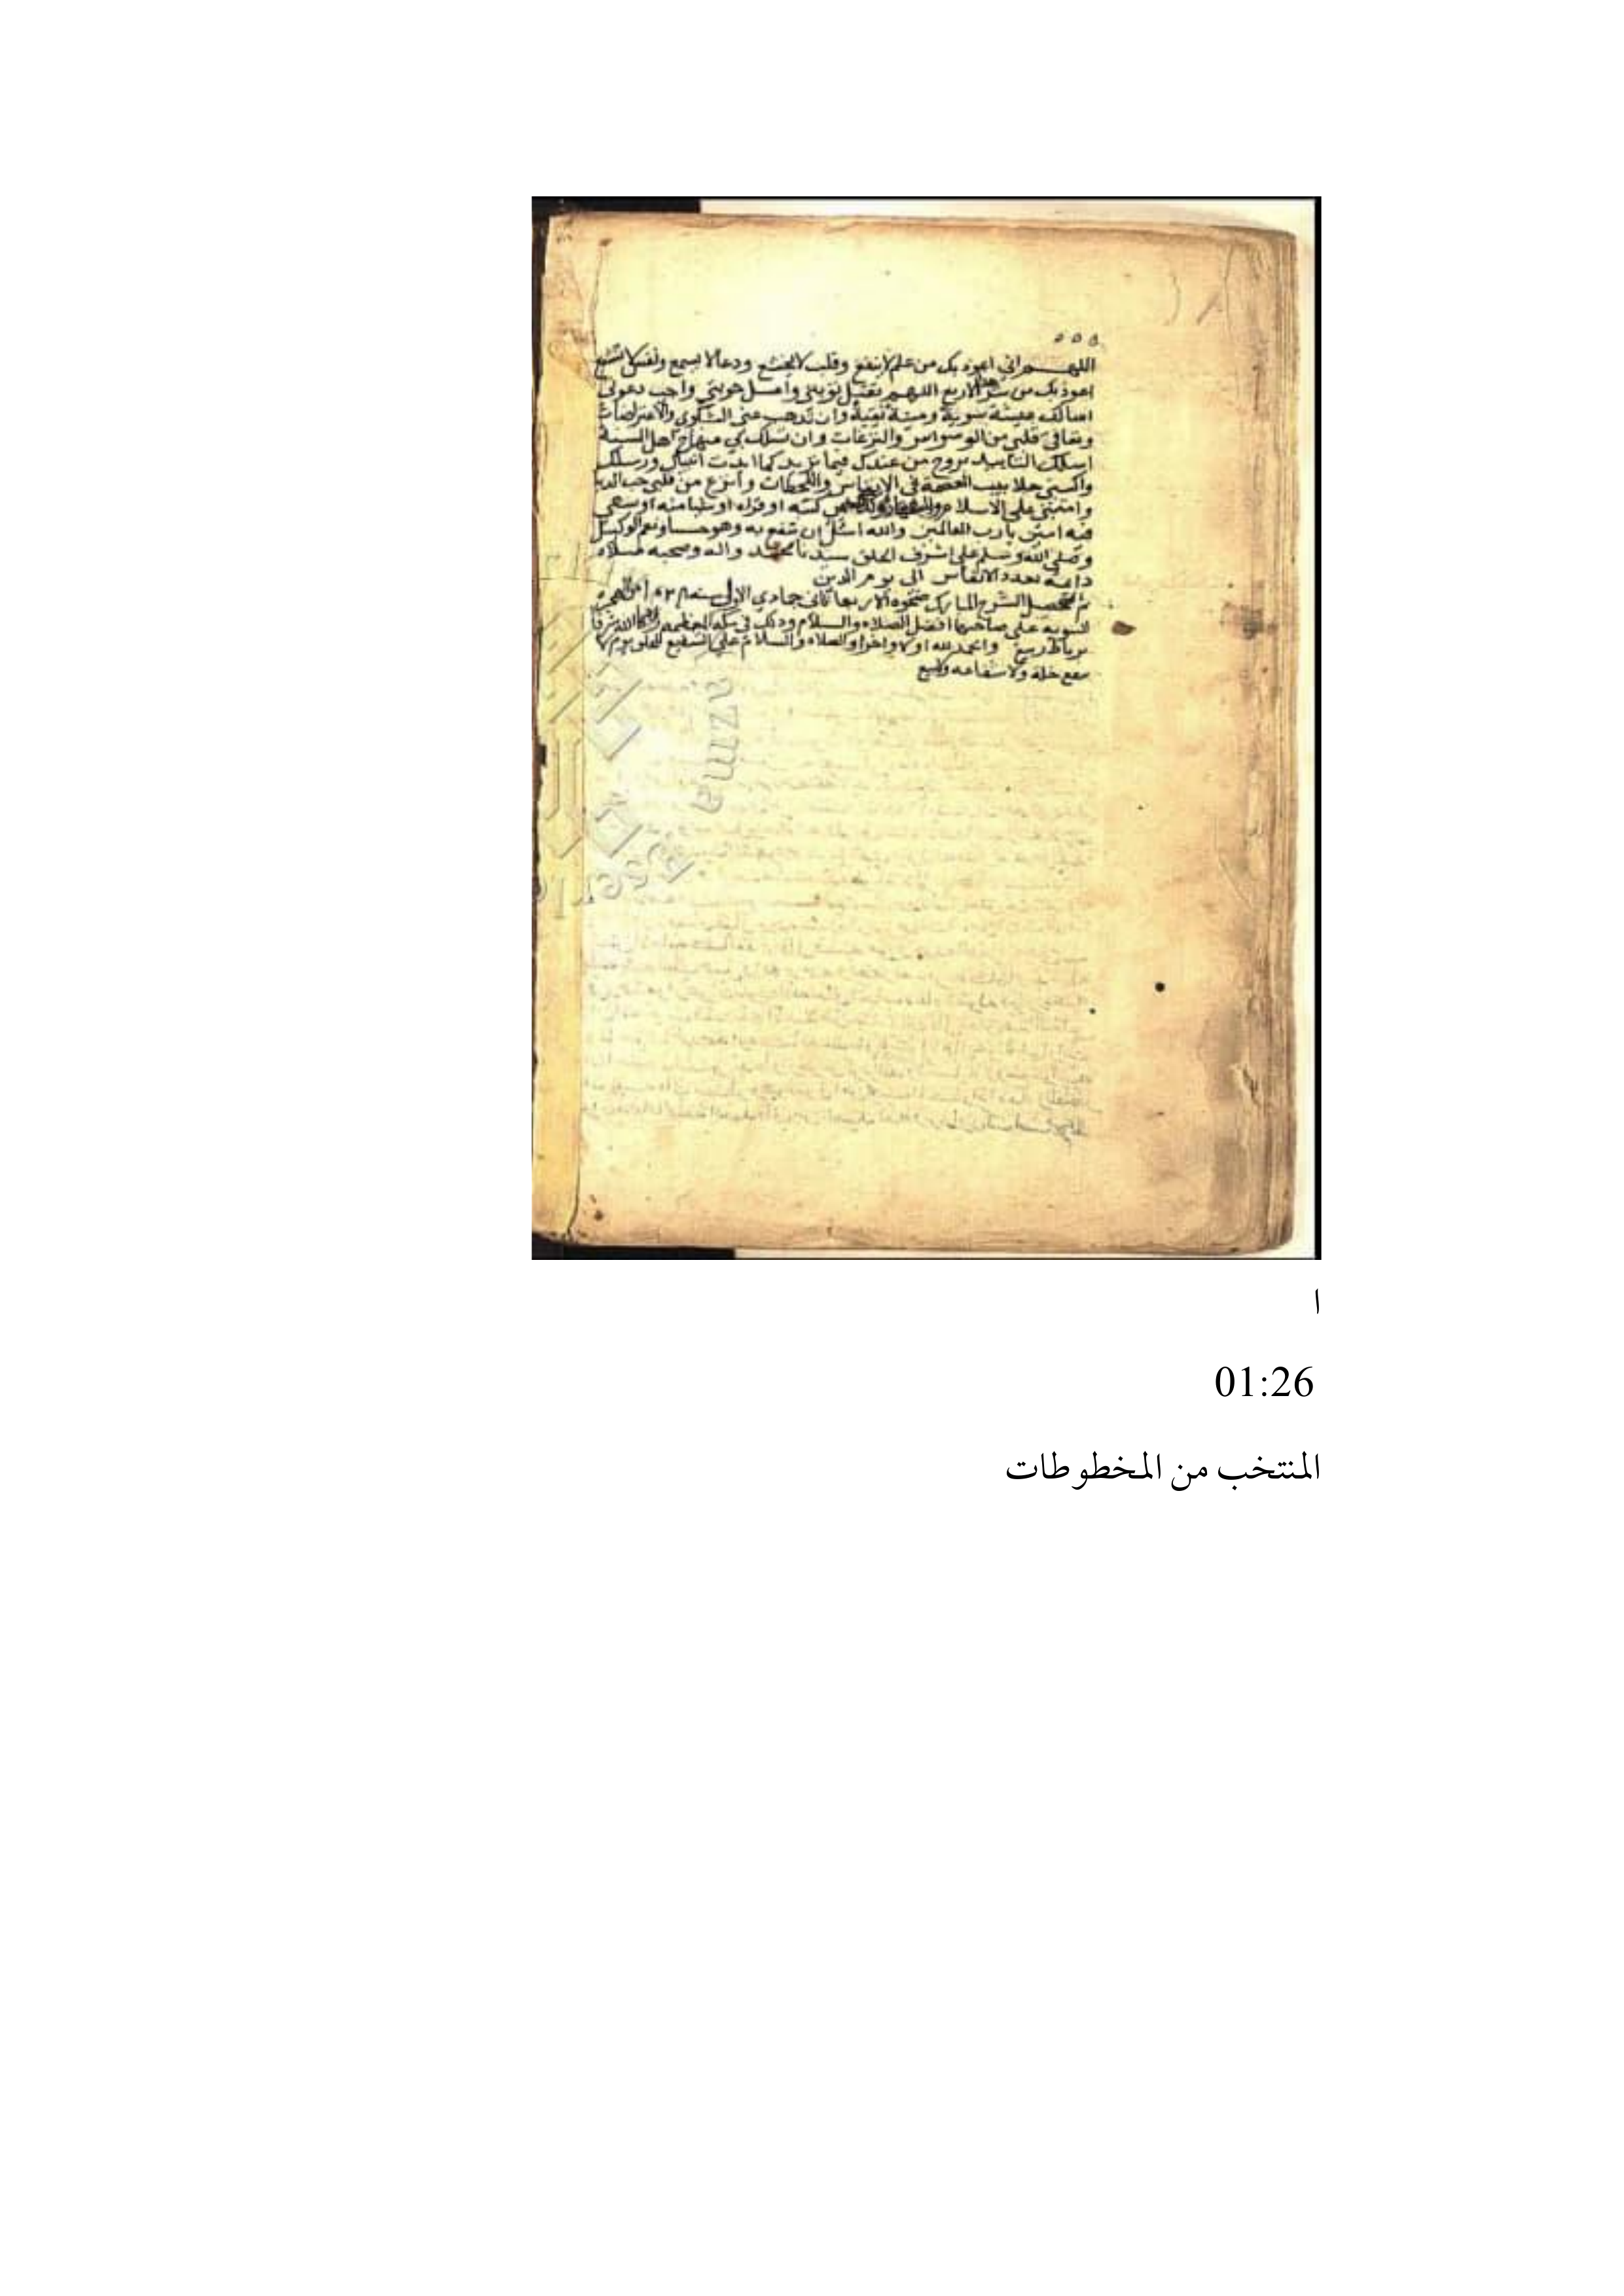 اللهم اني اعوذ بك من علم لا ينفع وقلب لا يخشع ودعا لا يسمع ونفس لا تشبع
اعوذ بك من شر الاربع اللهم تقبل توبتي واغسل حوبتي واجب دعوتي
اسالك عيشة سوية وميتة نقية وان تذهب عني الشكوي والاعتراضات
وتعافي قلبي من الوسواس والنزغات وان تسلك بي منهاج اهل السنة
اسلك التاييد بروح من عندك فيما تريد كما ايدت انبياك ورسلك
واكسني جلابيب العصمة في الانفاس واللحظات وانزع من قلبي حب الدنيا
وامتني علي الاسلام كتبه او قراه او شيا منه او سعي
فيه امين يارب العالمين والله اسئل ان ينفع به وهو حسبنا ونعم الوكيل
وصلي الله وسلم علي اشرف الخلق سيدنا محمد واله وصحبه صلاة
دائمة بعدد الانفاس الي يوم الدين
الشرح المبارك ضحوة الاربعا ثاني جمادي الاول سنة
النبوية علي صاحبها افضل الصلاه والسلام وذلك في مكة الله شرفا
برباط ربيع والحمد لله اولا واخرا والصلاه والسلام علي الشفيع يوم لا
ينفع خلة ولا شفاعه
ا
01:26
المنتخب من المخطوطات